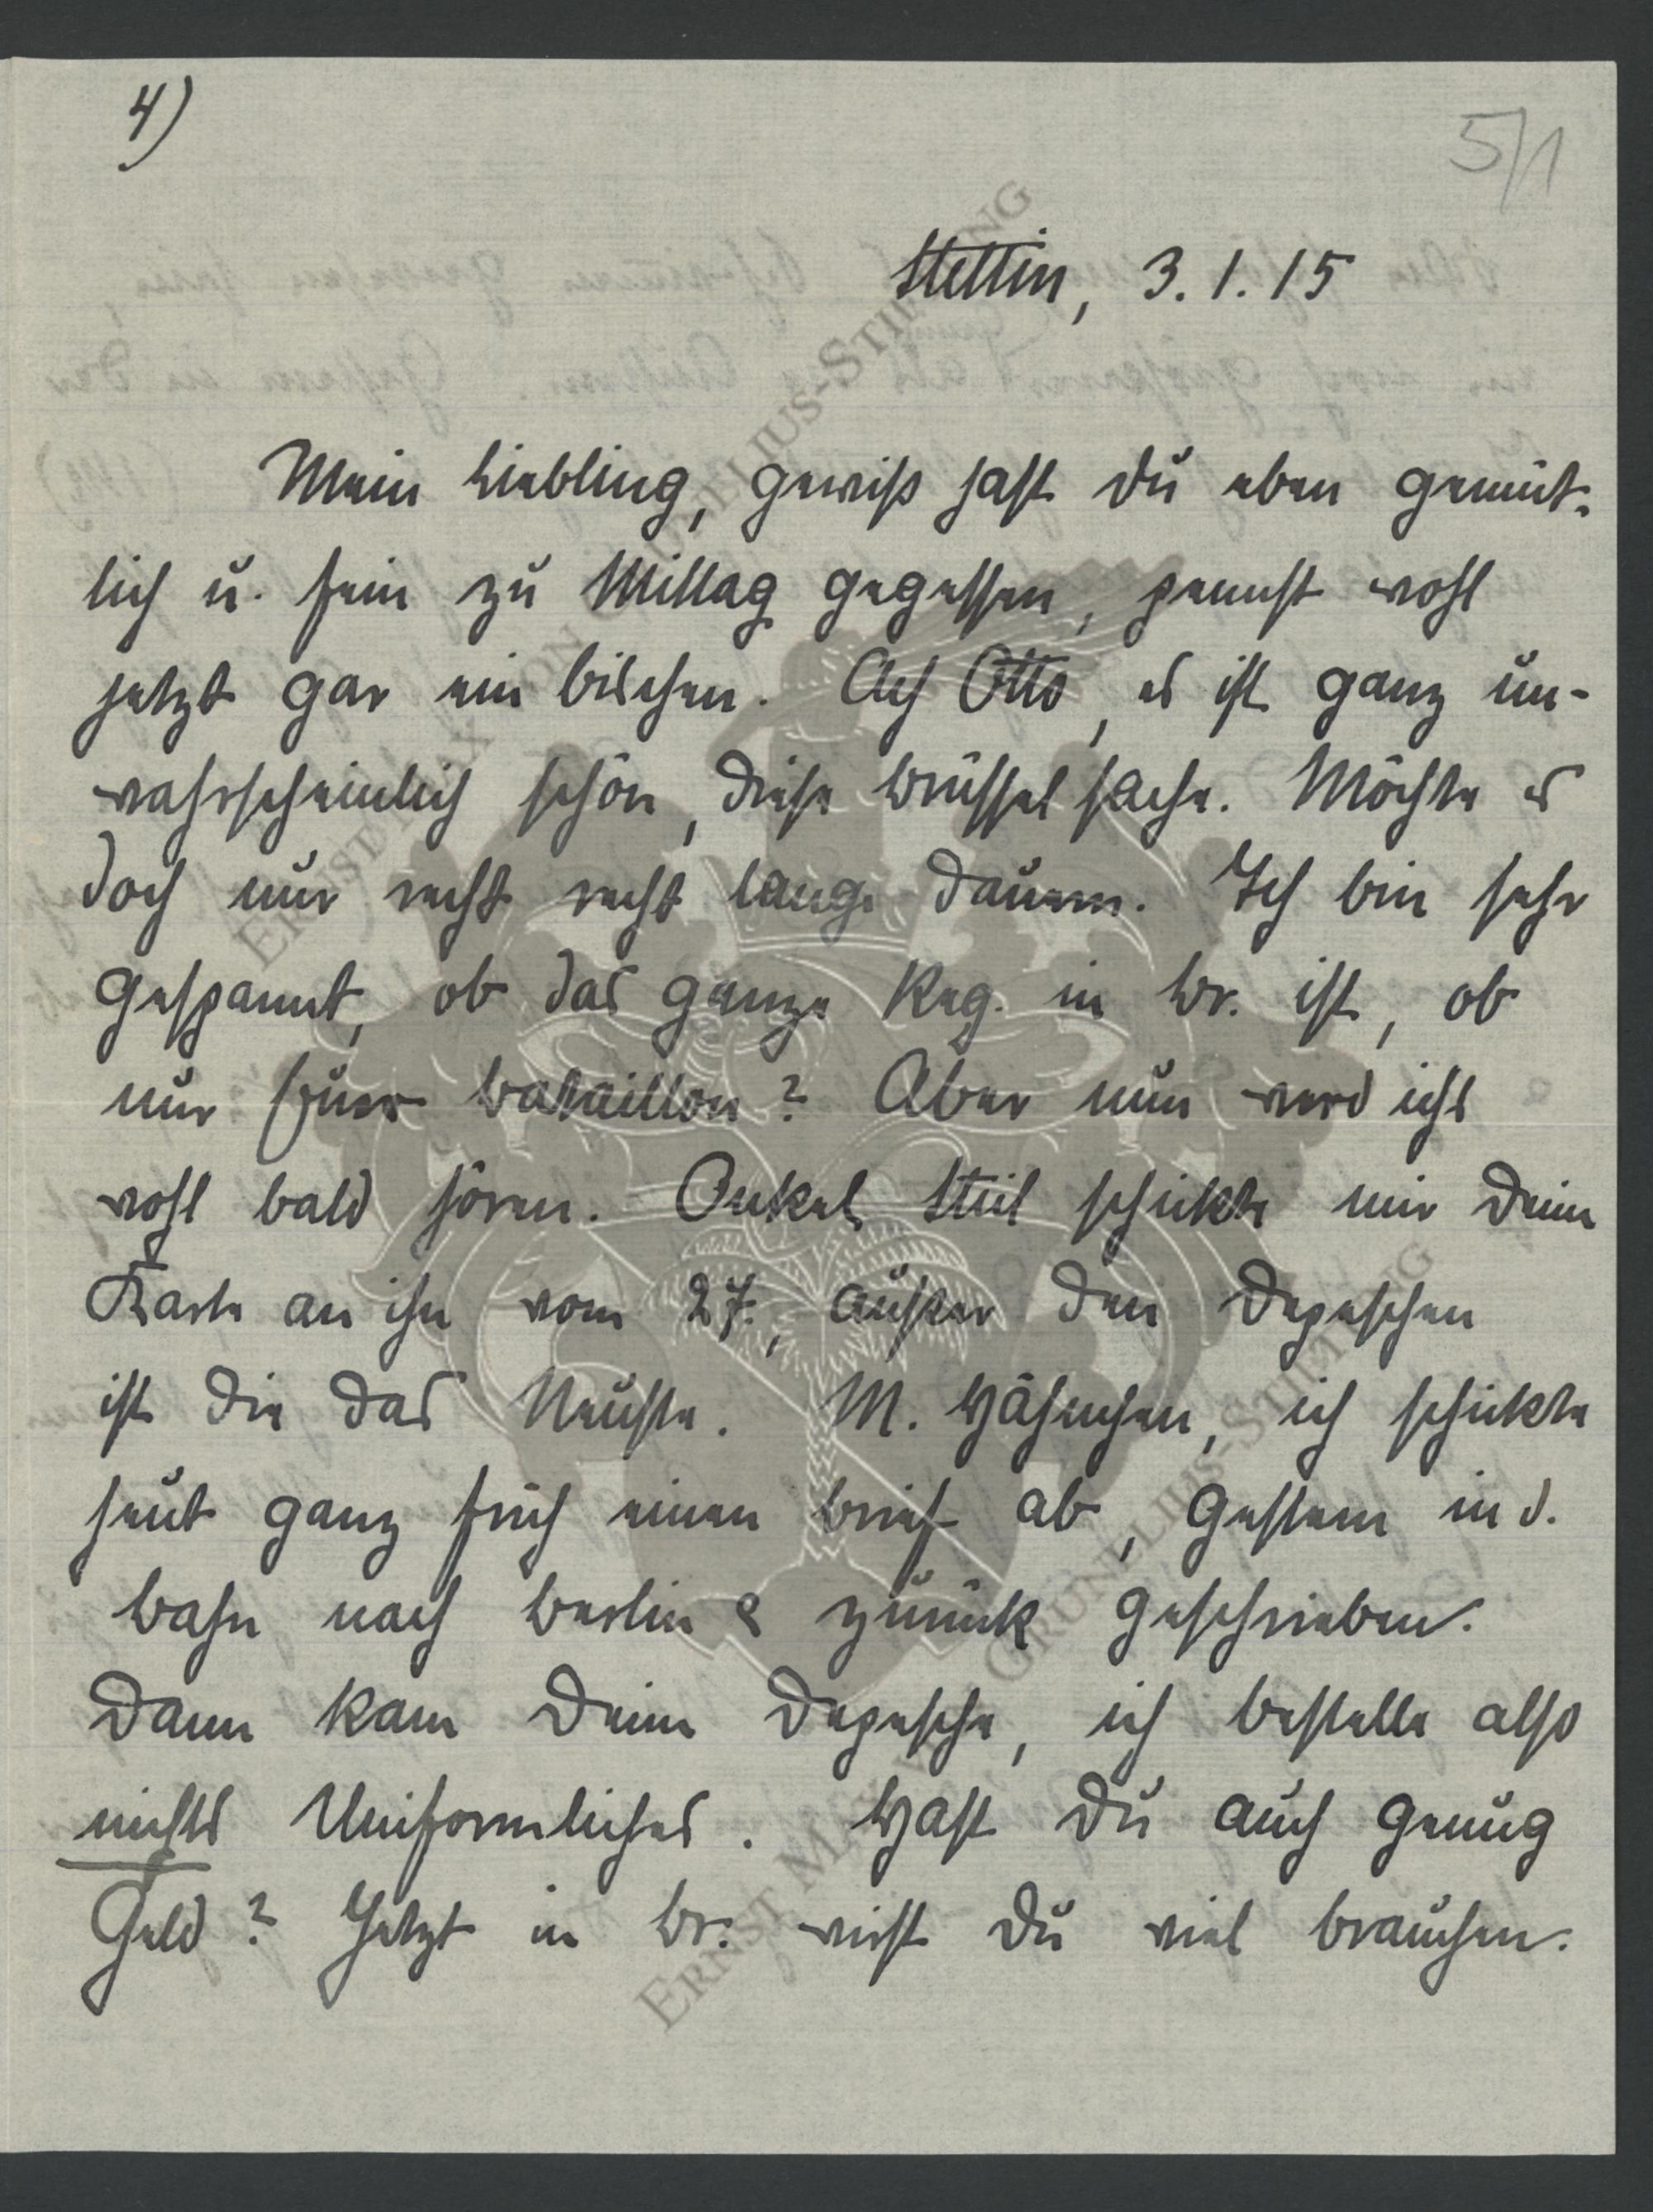 4)
5/1
Stettin, 3.1.15
Mein Liebling, gewiß hast Du eben gemüt-
lich u. fein zu Mittag gegessen, pennst wohl
jetzt gar ein bischen. Ach Otto, es ist ganz un-
wahrscheinlich schön, diese Brüsselsache. Möchte es
doch nur recht recht lange dauern. Ich bin sehr
gespannt, ob das ganze Reg. in Br. ist, ob
nur Euer Bataillon? Aber nun werd ichs
wohl bald hören. Onkel Stiel schickte mir Deine
Karte an ihn vom 27., außer den Depeschen
ist die das Neuste. M. Hähnchen, ich schickte
heut ganz früh einen Brief ab, gestern in d.
Bahn nach Berlin & zurück geschrieben.
Dann kam Deine Depesche, ich bestelle also
nichts Uniformliches. Hast Du auch genug
Geld? Jetzt in Br. wirst Du viel brauchen.
ERNST MAX VON GRUNELIUS-STIFTUNG
ERNST MAX VON GRUNELIUS-STIFTUNG